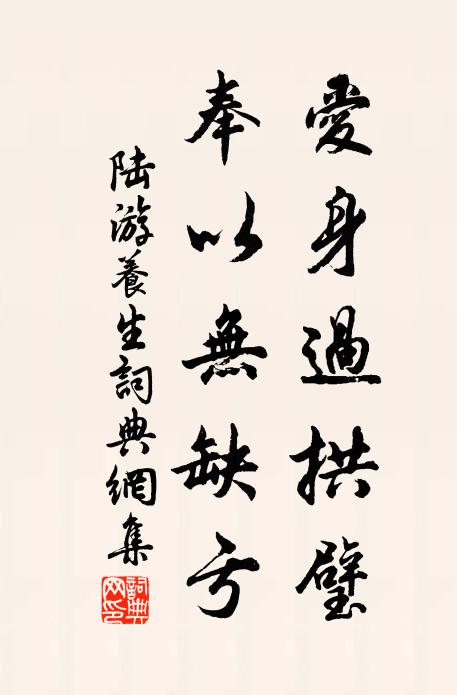 愛身過拱璧
奉以無缺亏
陆游養生詞典網集
詞典网印